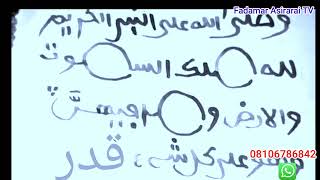 Fadamar Asirarai TV
وصلى الله على النبي الكريم
لله ملك السموت
والارض وما فيهن
على كل شيء قدر
08106786842